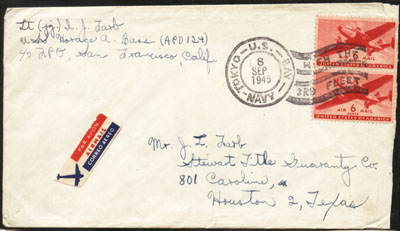 Lt (jg) I. J. Tarb
USS Horace A. Bass (APD 124)
c/o FPO, San Francisco, Calif.
TOKYO - U.S. - BAY - NAVY
8
SEP
1945
WITH THE
3RD FLEET
AIR 6 MAIL
UNITED STATES OF AMERICA
AIR 6 MAIL
UNITED STATES OF AMERICA
PAR AVION
AIR MAIL
CORREO AEREO
Mr. J. L. Tarb
Stewart Title Guaranty Co.
801 Caroline,
Houston 2, Texas